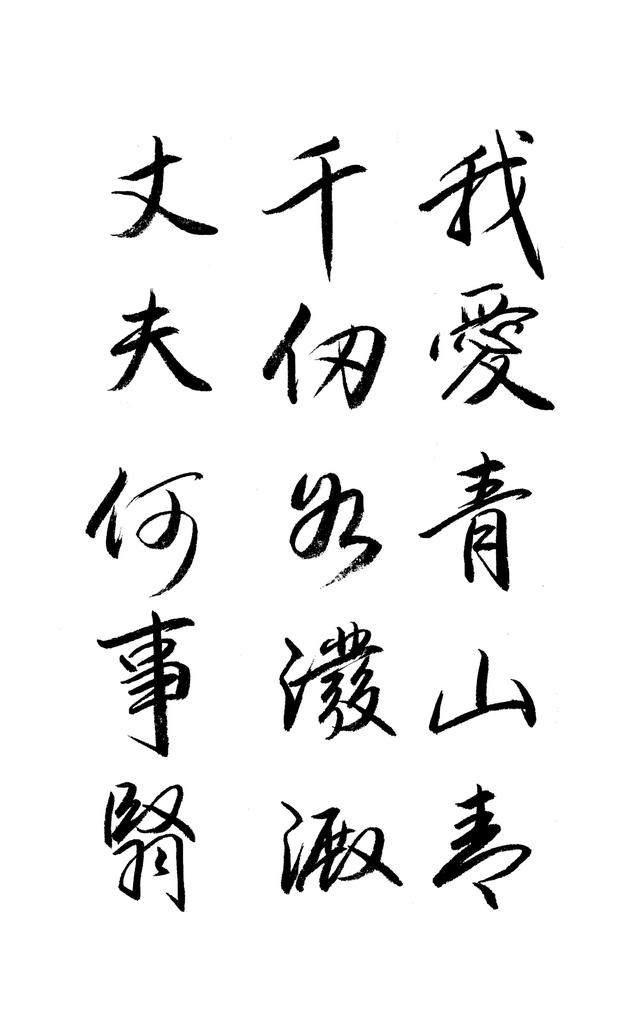 我愛青山青
千仞潑澱
丈夫何事翳